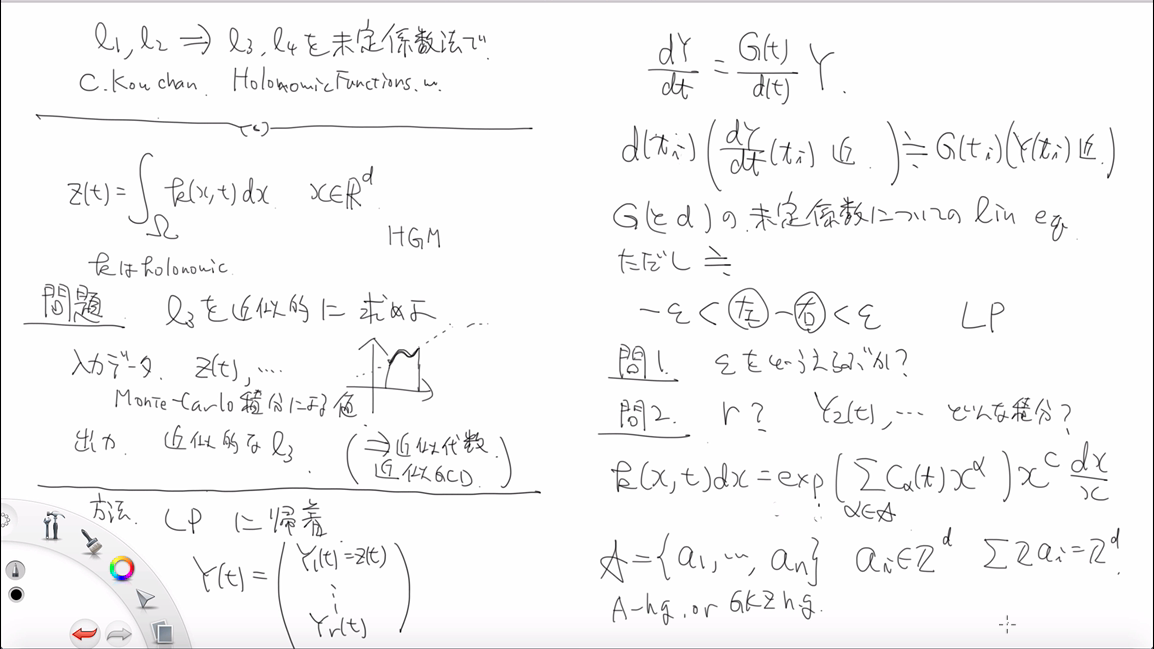 l₁, l₂ ⇒ l₃, l₄を未定係数法で
C. Koutchan. HolonomicFunctions.m
z(t) = ∫_Ω k(x,t) dx x∈ℝ^d
HGM
kはholonomic.
問題 l₃を近似的に求めよ
入力データ z(t), ...
Monte-Carlo積分による値
出力 近似的なl₃ (⇒近似代数
近似GCD.)
方法. LP に帰着
Y(t) = (Y₁(t)=z(t)
⋮
Yr(t))
dY/dt = G(t)/d(t) Y.
d(tᵢ)(dY/dt(tᵢ) 近.) ≒ G(tᵢ)(Y(tᵢ)近.)
G(とd)の未定係数についてのlin eq.
ただし ≒
-ε < 左 - 右 < ε LP
問1. εをどうえらぶか?
問2. r? Y₂(t), ... どんな積分?
k(x,t)dx = exp(∑_{α∈A} C_α(t)x^α) x^c dx/x
A = {a₁, ..., aₙ} aᵢ∈ℤ^d ∑ℤaᵢ=ℤ^d.
A-hg. or GKZ hg.